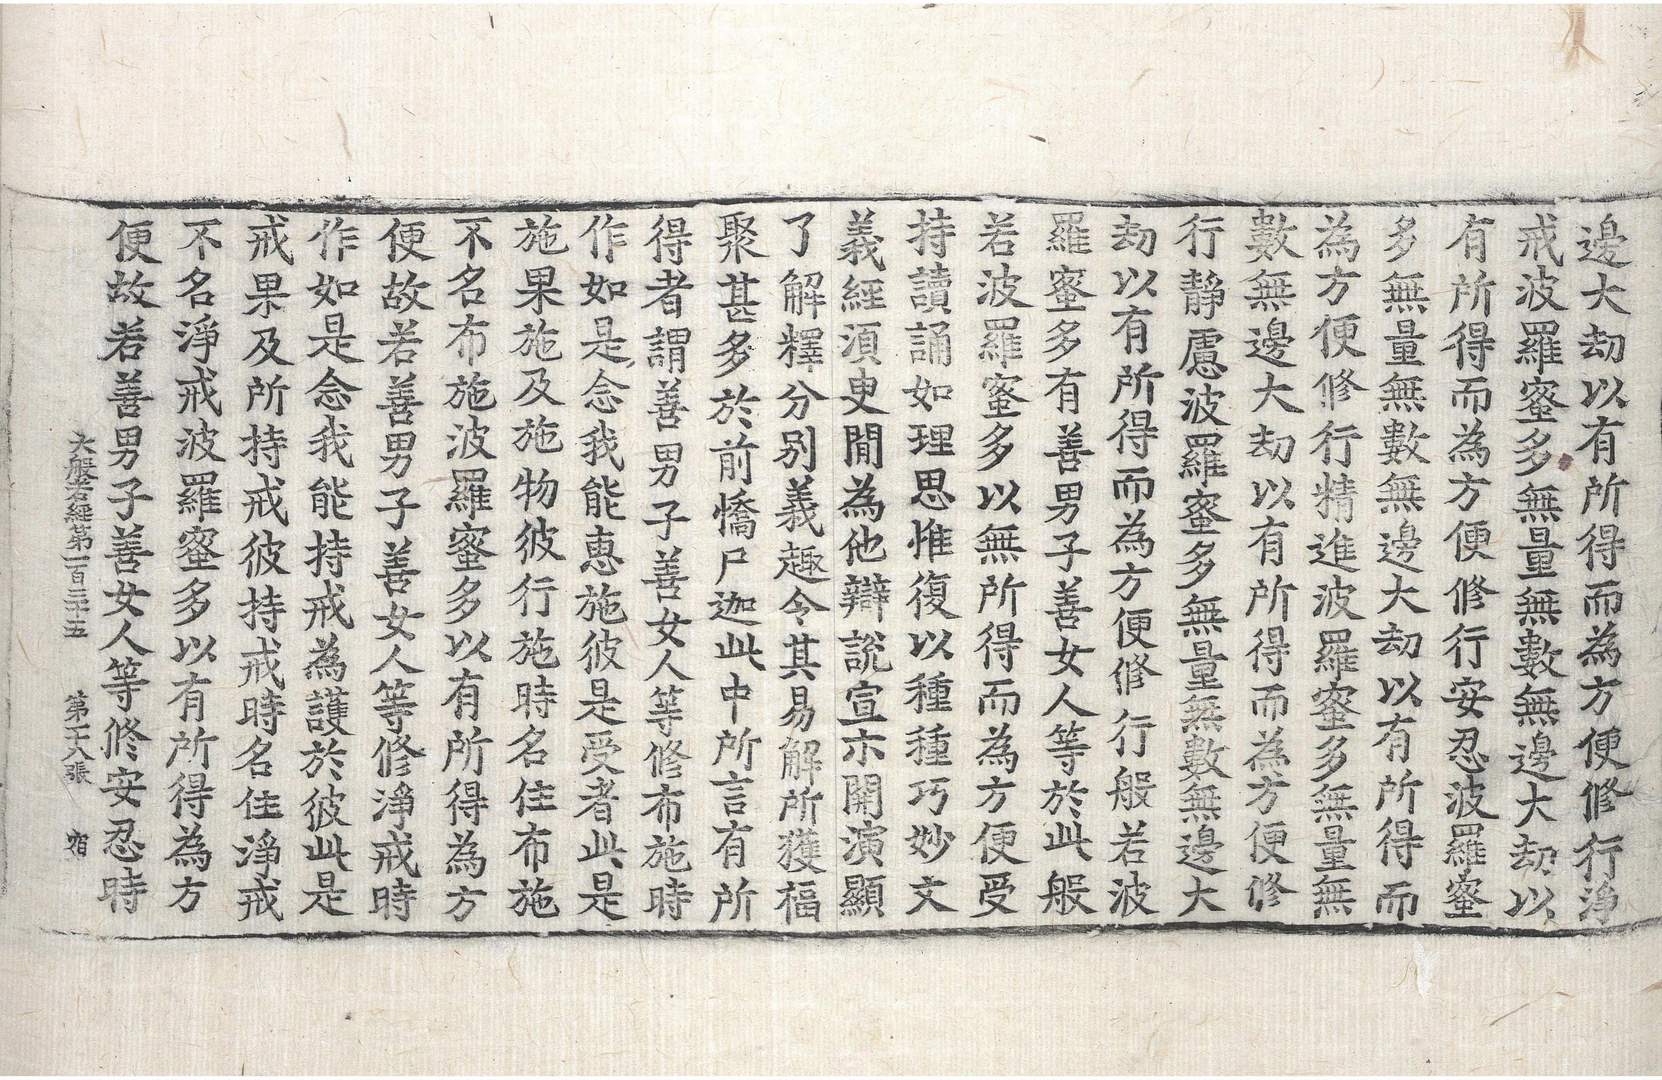 邊大劫以有所得而為方便修行淨
戒波羅蜜多無量無數無邊大劫以
有所得而為方便修行安忍波羅蜜
多無量無數無邊大劫以有所得而
為方便修行精進波羅蜜多無量無
數無邊大劫以有所得而為方便修
行靜慮波羅蜜多無量無數無邊大
劫以有所得而為方便修行般若波
羅蜜多有善男子善女人等於此般
若波羅蜜多以無所得而為方便受
持讀誦如理思惟復以種種巧妙文
義經須臾間為他辯說宣示開演顯
了解釋分別義趣令其易解所獲福
聚甚多於前憍尸迦此中所言有所
得者謂善男子善女人等修布施時
作如是念我能惠施彼是受者此是
施果施及施物彼行施時名住布施
不名布施波羅蜜多以有所得為方
便故若善男子善女人等修淨戒時
作如是念我能持戒為護於彼此是
戒果及所持戒彼持戒時名住淨戒
不名淨戒波羅蜜多以有所得為方
便故若善男子善女人等修安忍時
大般若經第一百三十五 第十八張 宿